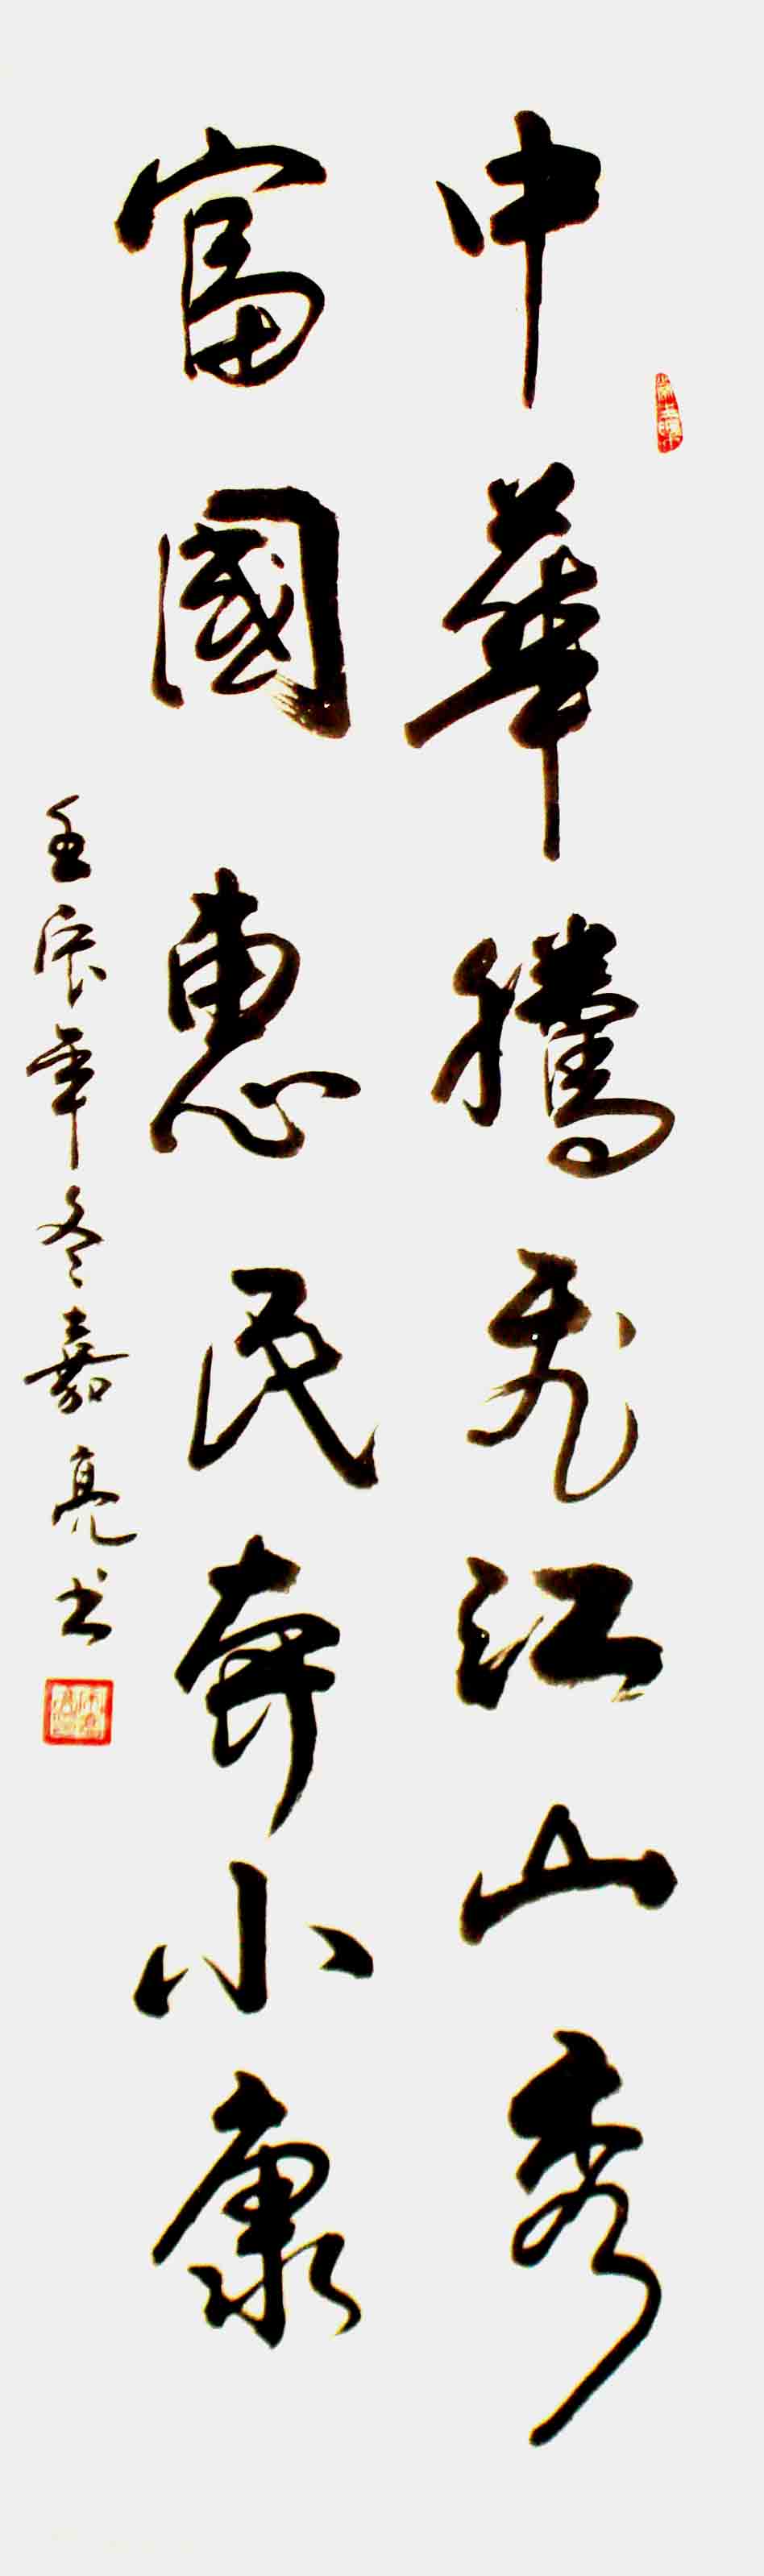 中華騰飛江山秀
富國惠民奔小康
壬辰年冬嘉亮书